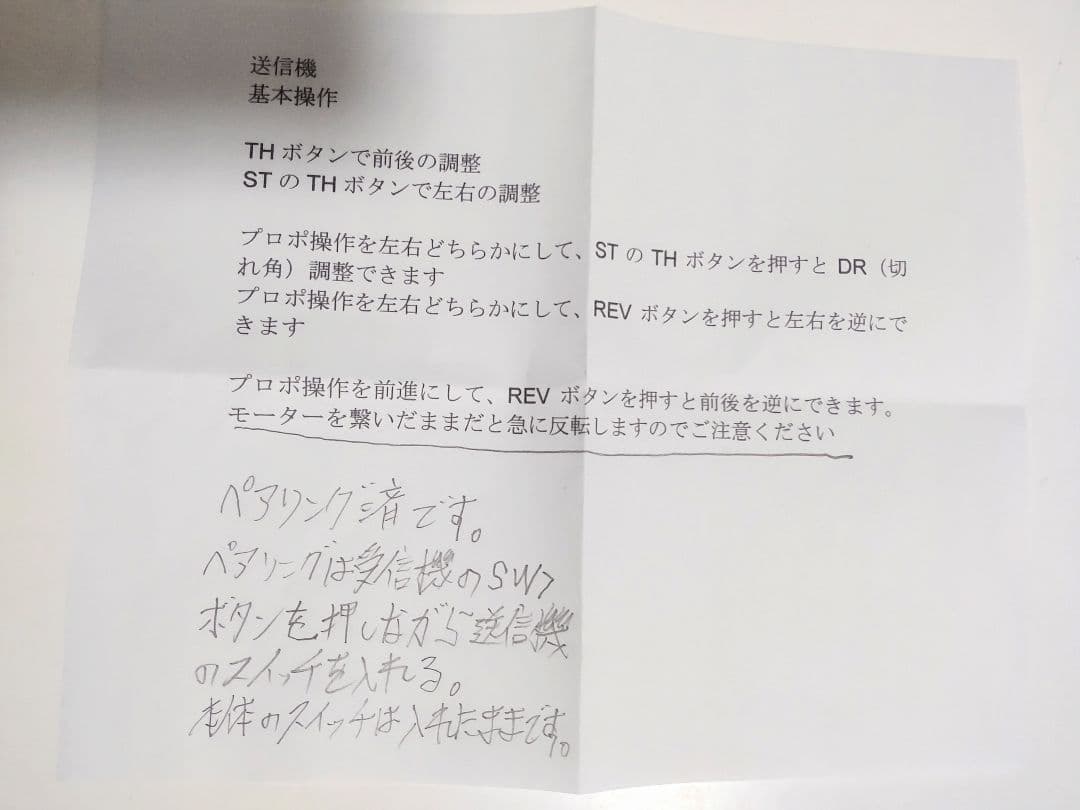 送信機
基本操作
TH ボタンで前後の調整
ST の TH ボタンで左右の調整
プロポ操作を左右どちらかにして、ST の TH ボタンを押すと DR（切
れ角）調整できます
プロポ操作を左右どちらかにして、REV ボタンを押すと左右を逆にで
きます
プロポ操作を前進にして、REV ボタンを押すと前後を逆にできます。
モーターを繋いだままだと急に反転しますのでご注意ください
ペアリング済です。
ペアリングは受信機のSW
ボタンを押しながら送信機
のスイッチを入れる。
本体のスイッチは入れたままです。